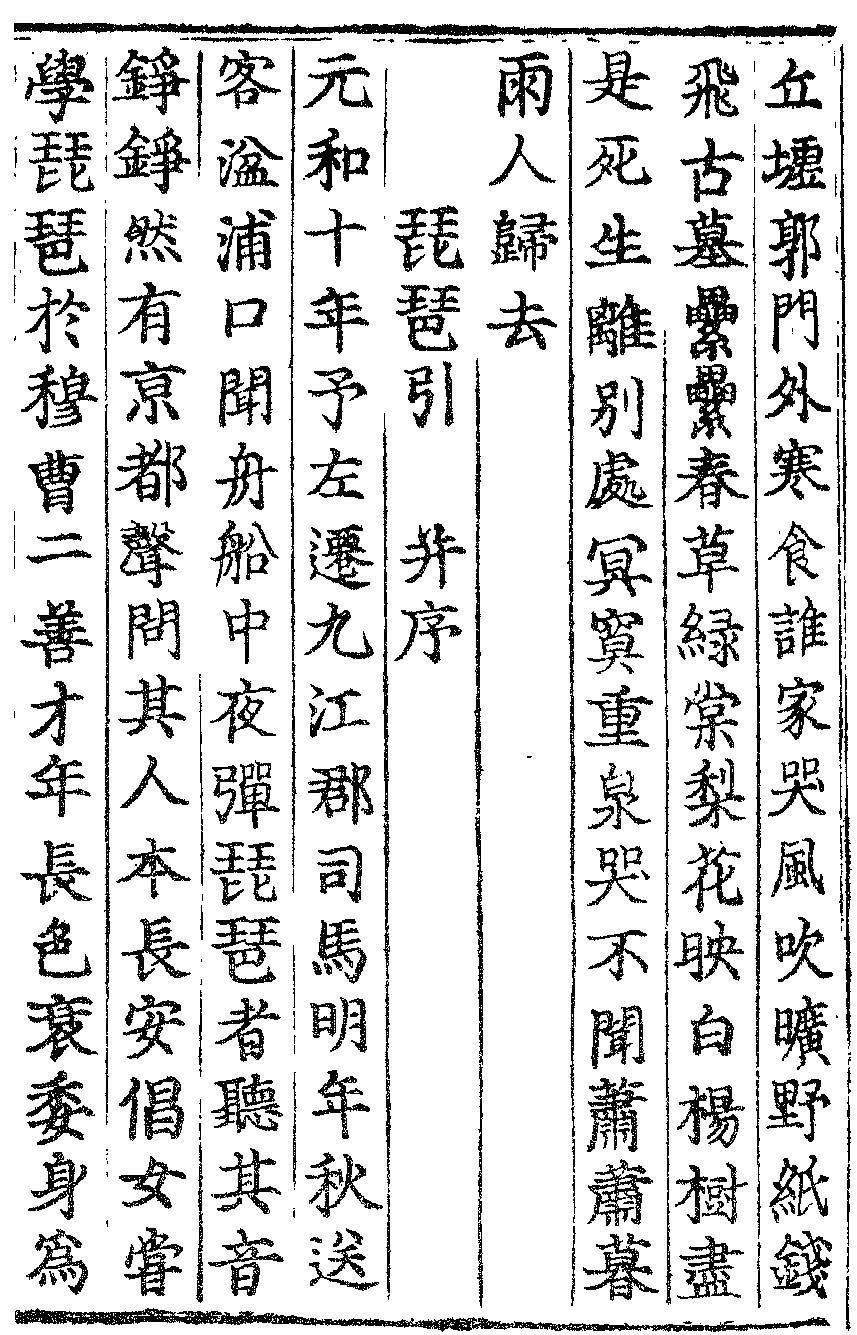 丘墟郭門外寒食誰家哭風吹曠野紙錢
飛古墓纍纍春草緑棠梨花映白楊樹盡
是死生離别處冥寞重泉哭不聞蕭蕭暮
雨人歸去
琵琶引 并序
元和十年予左遷九江郡司馬明年秋送
客湓浦口聞舟船中夜彈琵琶者聽其音
錚錚然有京都聲問其人本長安倡女甞
學琵琶於穆曹二善才年長色衰委身爲